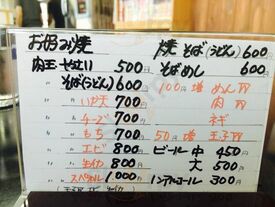 お好み焼
肉玉 500円
〃 そば(うどん) 600〃
〃 いか天 700〃
〃 チーズ 700〃
〃 もち 700〃
〃 エビ 800〃
〃 生イカ 800〃
〃 スペシャル 1,000〃
焼そば(うどん) 600円
そばめし 600〃
100円 増 めん
ネギ
50円 増 玉子
ビール 中 450円
大 500〃
ノンアルコール 300〃